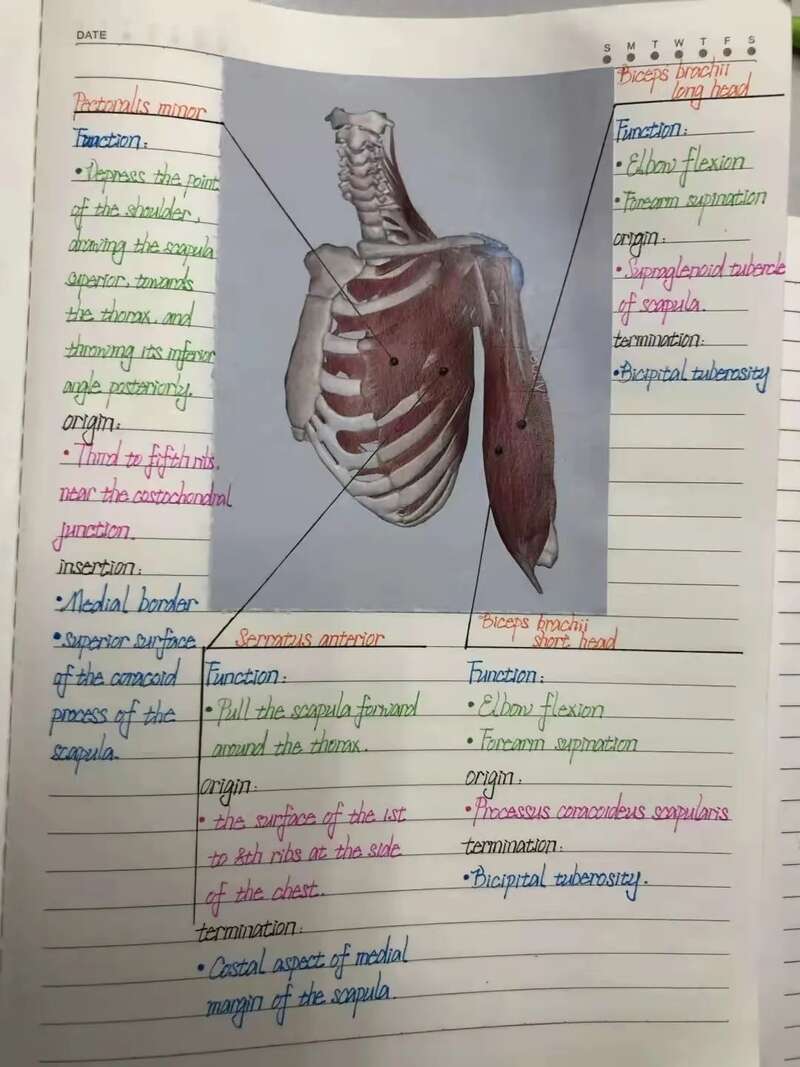 DATE
S M T W T F S
Pectoralis minor
Function:
• Depress the point
of the shoulder,
drawing the scapula
superior, towards
the thorax, and
throwing its inferior
angle posteriorly.
origin:
• Third to fifth ribs,
near the costochondral
junction.
insertion:
• Medial border
• superior surface
of the coracoid
process of the
scapula.
Biceps brachii
long head
Function:
• Elbow flexion
• Forearm supination
origin:
• Supraglenoid tubercle
of scapula.
termination:
• Bicipital tuberosity
Serratus anterior
Function:
• Pull the scapula forward
around the thorax.
origin:
• the surface of the 1st
to 8th ribs at the side
of the chest.
termination:
• Costal aspect of medial
margin of the scapula.
Biceps brachii
short head
Function:
• Elbow flexion
• Forearm supination
origin:
• Processus coracoideus scapularis
termination:
• Bicipital tuberosity.